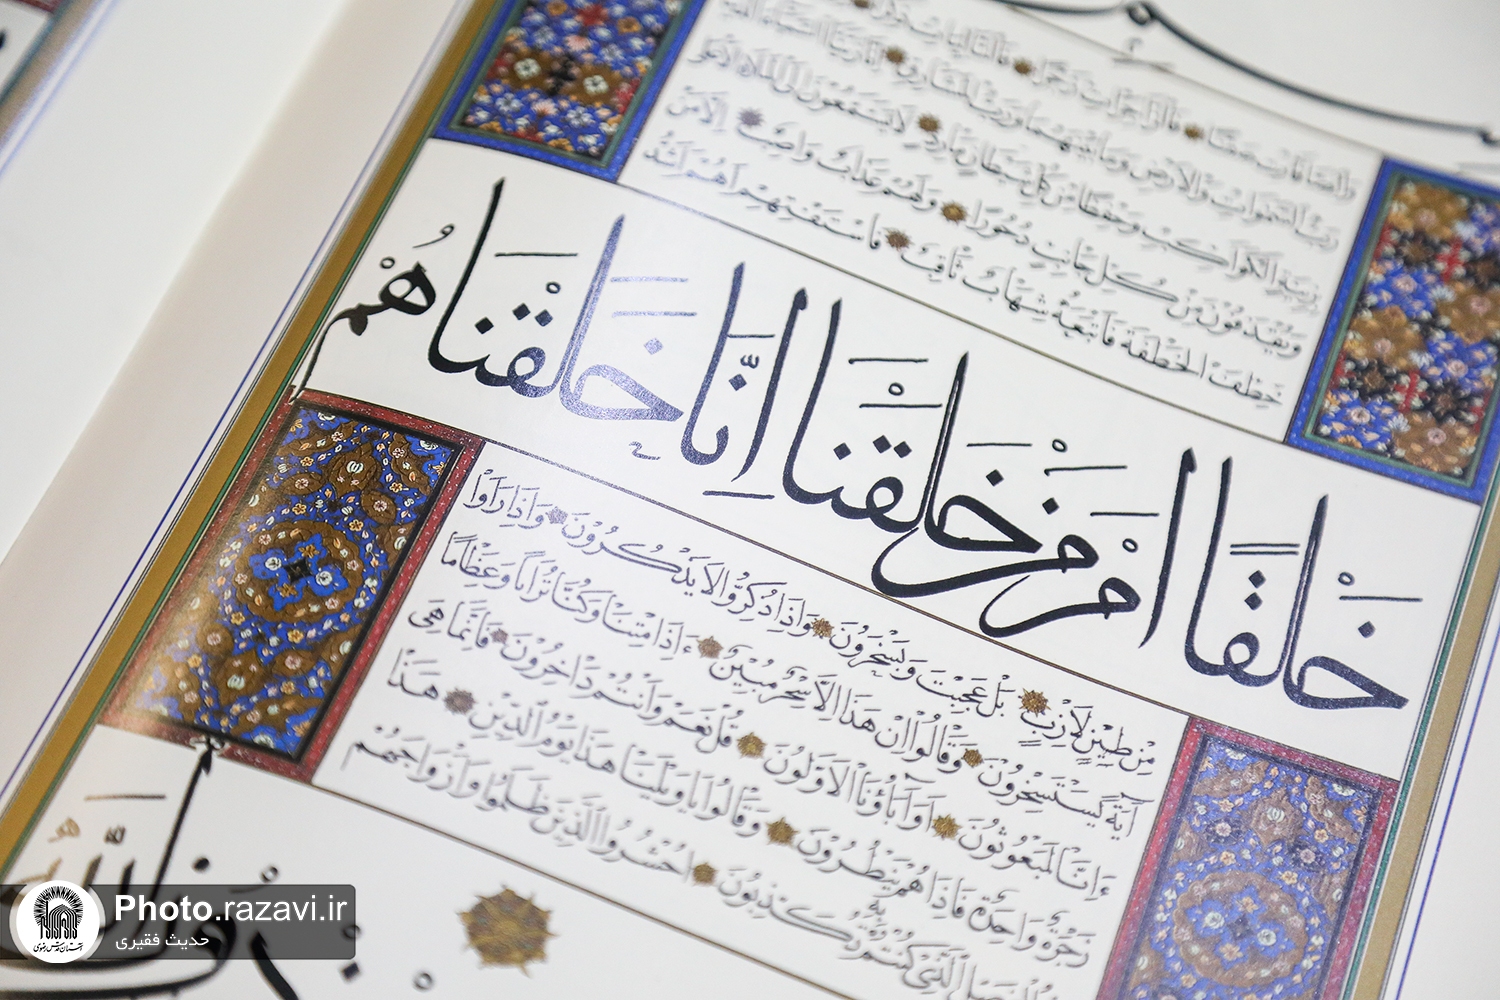 وَالصَّافَّاتِ صَفًّا فَالزَّاجِرَاتِ زَجْرًا فَالتَّالِيَاتِ
رَبُّ السَّمٰوَاتِ وَالْاَرْضِ وَمَا بَيْنَهُمَا وَرَبُّ الْمَشَارِقِ اِنَّا زَيَّنَّا السَّمَاءَ
بِزِينَةٍ الْكَوَاكِبِ وَحِفْظًا مِنْ كُلِّ شَيْطَانٍ مَارِدٍ لَا يَسَّمَّعُونَ اِلَى الْمَلَاِ الْاَعْلٰى
وَيُقْذَفُونَ مِنْ كُلِّ جَانِبٍ دُحُورًا وَلَهُمْ عَذَابٌ وَاصِبٌ اِلَّا مَنْ
خَطِفَ الْخَطْفَةَ فَاَتْبَعَهُ شِهَابٌ ثَاقِبٌ فَاسْتَفْتِهِمْ اَهُمْ اَشَدُّ
خَلْقًا اَمْ مَنْ خَلَقْنَا اِنَّا خَلَقْنَاهُمْ
مِنْ طِينٍ لَازِبٍ بَلْ عَجِبْتَ وَيَسْخَرُونَ وَاِذَا ذُكِّرُوا لَا يَذْكُرُونَ وَاِذَا رَاَوْا
اٰيَةً يَسْتَسْخِرُونَ وَقَالُوا اِنْ هٰذَا اِلَّا سِحْرٌ مُبِينٌ ءَاِذَا مِتْنَا وَكُنَّا تُرَابًا وَعِظَامًا
ءَاِنَّا لَمَبْعُوثُونَ اَوَاٰبَاؤُنَا الْاَوَّلُونَ قُلْ نَعَمْ وَاَنْتُمْ دَاخِرُونَ فَاِنَّمَا هِىَ
زَجْرَةٌ وَاحِدَةٌ فَاِذَا هُمْ يَنْظُرُونَ وَقَالُوا يَا وَيْلَنَا هٰذَا يَوْمُ الدِّينِ هٰذَا
يَوْمُ الْفَصْلِ الَّذِى كُنْتُمْ بِهِ تُكَذِّبُونَ اُحْشُرُوا الَّذِينَ ظَلَمُوا وَاَزْوَاجَهُمْ
Photo.razavi.ir
حدیث فقیری
آستان قدس رضوی